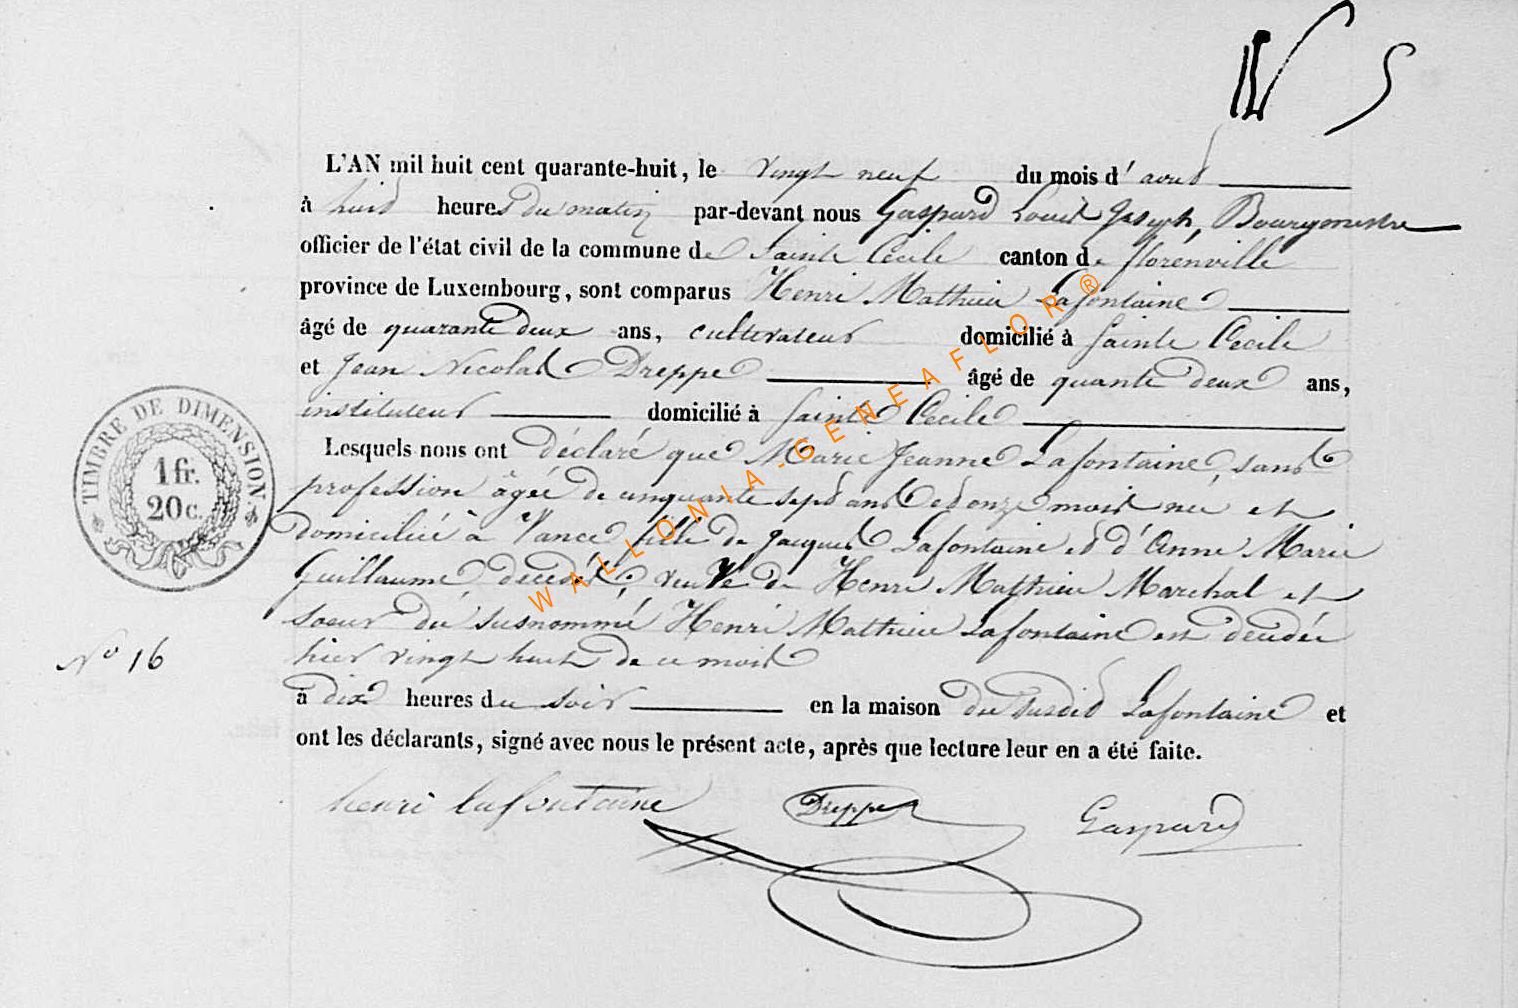 N 5
L'AN mil huit cent quarante-huit, le vingt neuf du mois d'avril
à huit heures du matin par-devant nous Gaspard Louis Joseph, Bourgmestre
officier de l'état civil de la commune de Sainte Cécile canton de florenville
province de Luxembourg, sont comparus Henri Mathieu Lafontaine
âgé de quarante deux ans, cultivateur domicilié à Sainte Cécile
et Jean Nicolas Dreppe âgé de quante deux ans,
instituteur domicilié à Sainte Cecile
Lesquels nous ont déclaré que Marie Jeanne Lafontaine, sans
profession âgée de cinquante sept ans et onze mois née et
domiciliée à Vance fille de Jacques Lafontaine et d'Anne Marie
Guillaume décédés, veuve de Henri Mathieu Marchal et
soeur du susnommé Henri Mathieu Lafontaine est décédée
hier vingt huit de ce mois
à dix heures du soir en la maison du susdit Lafontaine et
ont les déclarants, signé avec nous le présent acte, après que lecture leur en a été faite.
henri lafontaine Dreppe Gaspard
TIMBRE DE DIMENSION.
1 fr.
20 c.
N° 16
WALLONIA-GENEAFLOR®